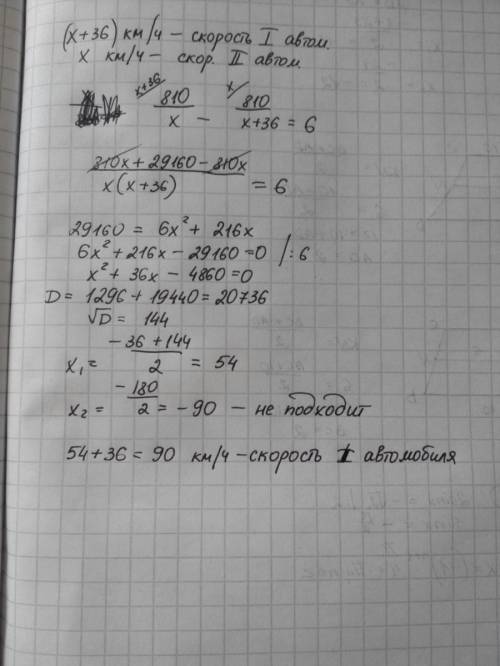 (x+36) км/ч – скорость I автом.
x км/ч – скор. II автом.
x+36/ 810/x – x/ 810/(x+36) = 6
(810x + 29160 – 810x)/(x(x+36)) = 6
29160 = 6x² + 216x
6x² + 216x – 29160 = 0 /:6
x² + 36x – 4860 = 0
D = 1296 + 19440 = 20736
√D = 144
x₁ = (–36 + 144)/2 = 54
x₂ = –180/2 = –90 – не подходит
54 + 36 = 90 км/ч – скорость I автомобиля